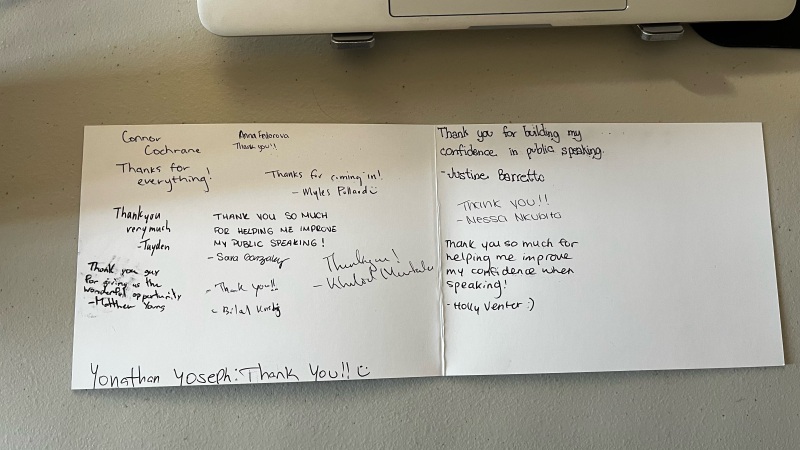 Connor
Cochrane
Thanks for
everything!
Anna Fedorova
Thank you!!
Thanks for coming in!
- Myles Pollard
Thank you
very much
- Tayden
THANK YOU SO MUCH
FOR HELPING ME IMPROVE
MY PUBLIC SPEAKING!
- Sara Gonzalez
Thank you guy
for giving us the
wonderful opportunity
- Matthew Young
- Thank you!!
- Bilal
Thank you!
-
Yonathan Yoseph: Thank You!!
Thank you for building my
confidence in public speaking.
- Justine Barretto
Thank you!!
- Nessa Nkubito
Thank you so much for
helping me improve
my confidence when
speaking!
- Holly Venter :)